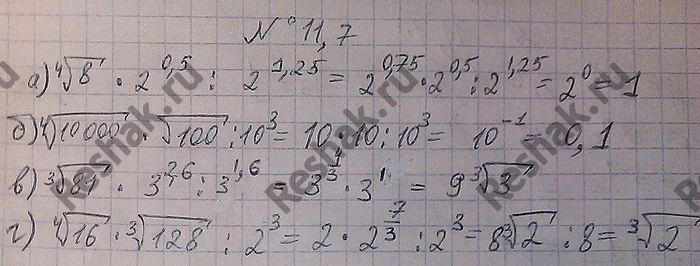 № 11,7
а) ⁴√8 · 2^0,5 : 2^1,25 = 2^0,75 · 2^0,5 : 2^1,25 = 2^0 = 1
б) ⁴√10000 · √100 : 10^3 = 10 · 10 : 10^3 = 10^-1 = 0,1
в) ³√81 · 3^2,6 : 3^1,6 = 3^4/3 · 3^1 = 9 ³√3
г) ⁴√16 · ³√128 : 2^3 = 2 · 2^7/3 : 2^3 = 8 ³√2 : 8 = ³√2
Reshak.ru
Reshak.ru
Reshak.ru